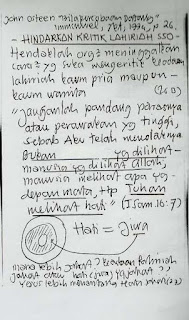 John Osteen "Bila pencobaan datang"
Immanuel, Jkt, 1996, p 26.
- HINDARKAN KRITIK LAHIRIAH SSO -
Hendaklah org2 meninggalkan
cara2 yg suka mengeritik keadaan
lahiriah kaum pria maupun-
kaum wanita
"Janganlah pandang parasnya
atau perawakan yg tinggi,
sebab Aku telah menolaknya
Bukan yg dilihat-
manusia yg dilihat Allah,
manusia melihat apa yg-
depan mata, ttp Tuhan
melihat hati" (I Sam. 16:7)
Hati = Jiwa
mana lebih jahat? Keadaan lahiriah
jahat atau hati (jiwa) yg jahat??
Yesus lebih menentang Hati